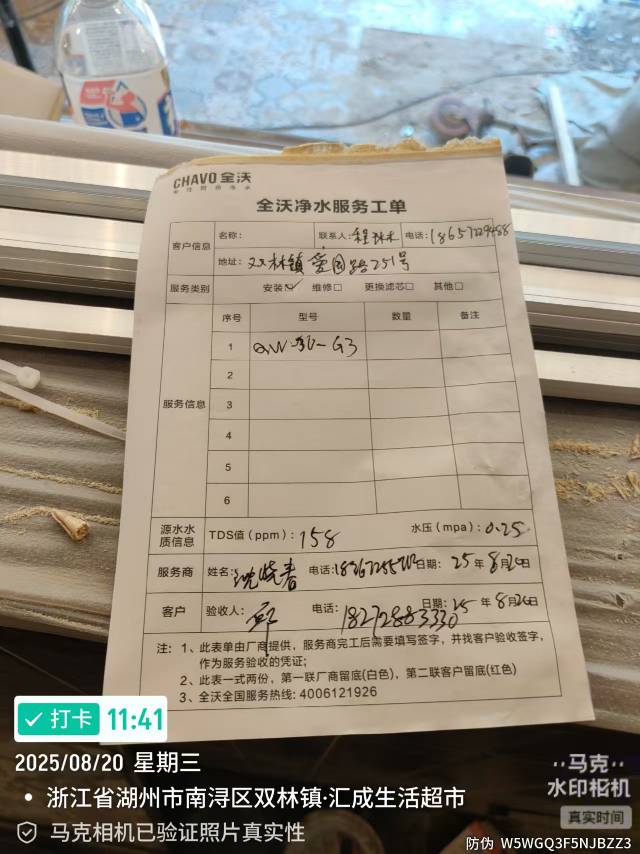 CHAVO 全沃
全沃净水服务工单
客户信息 名称: 联系人: 电话: 18657229488
地址: 双林镇爱国路251号
服务类别 安装☑ 维修□ 更换滤芯□ 其他□
服务信息 序号 型号 数量 备注
1 G3
2
3
4
5
6
源水水质信息 TDS值（ppm）: 158 水压（mpa）: 0.25
服务商 姓名: 沈晓春 电话: 日期: 25年8月20日
客户 验收人: 电话: 18272883330 日期: 25年8月20日
注: 1、此表单由厂商提供，服务商完工后需要填写签字，并找客户验收签字，
作为服务验收的凭证;
2、此表一式两份，第一联厂商留底(白色)，第二联客户留底(红色)
3、全沃全国服务热线: 4006121926
打卡 11:41
2025/08/20 星期三
浙江省湖州市南浔区双林镇·汇成生活超市
马克相机已验证照片真实性
马克
水印相机
真实时间
防伪 W5WGQ3F5NJBZZ3